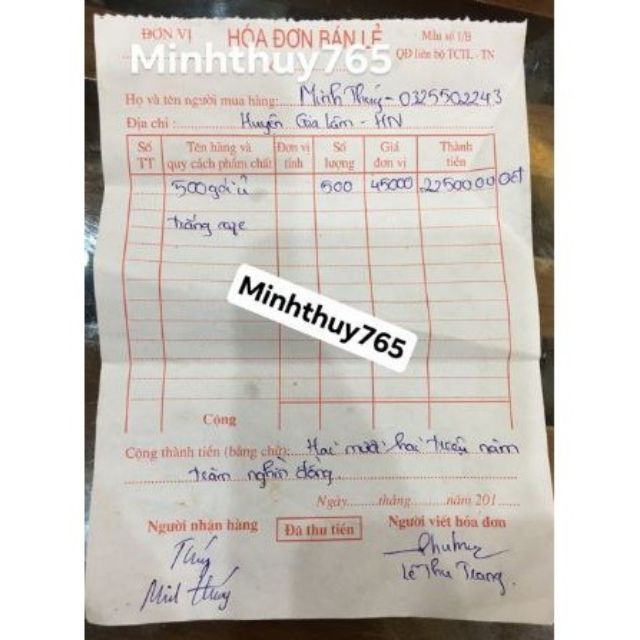 ĐƠN VỊ HÓA ĐƠN BÁN LẺ Mẫu số 1/B
Minhthuy765 QĐ liên bộ TCTL - TN
Họ và tên người mua hàng: Minh Thúy - 0325502243
Địa chỉ: Huyện Gia Lâm - HN
Số TT Tên hàng và quy cách phẩm chất Đơn vị tính Số lượng Giá đơn vị Thành tiền
500 gói ủ 500 45000 22500000
trắng
Minhthuy765
Cộng
Cộng thành tiền (bằng chữ): Hai mươi hai triệu năm
trăm nghìn đồng.
Ngày......tháng......năm 201......
Người nhận hàng Đã thu tiền Người viết hóa đơn
Thúy
Minh Thúy Lê Thu Trang.